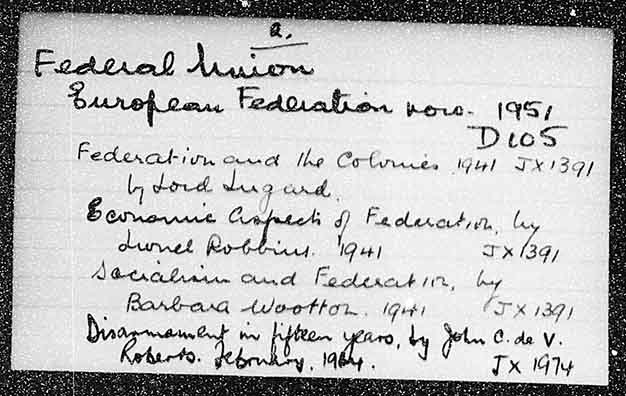 a.
Federal Union
European Federation now. 1951
D105
Federation and the Colonies 1941 JX1391
by Lord Lugard.
Economic Aspects of Federation, by
Lionel Robbins. 1941 JX1391
Socialism and Federation, by
Barbara Wootton. 1941 JX1391
Disarmament in fifteen years, by John C. de V.
Roberts. February, 1964. JX1974